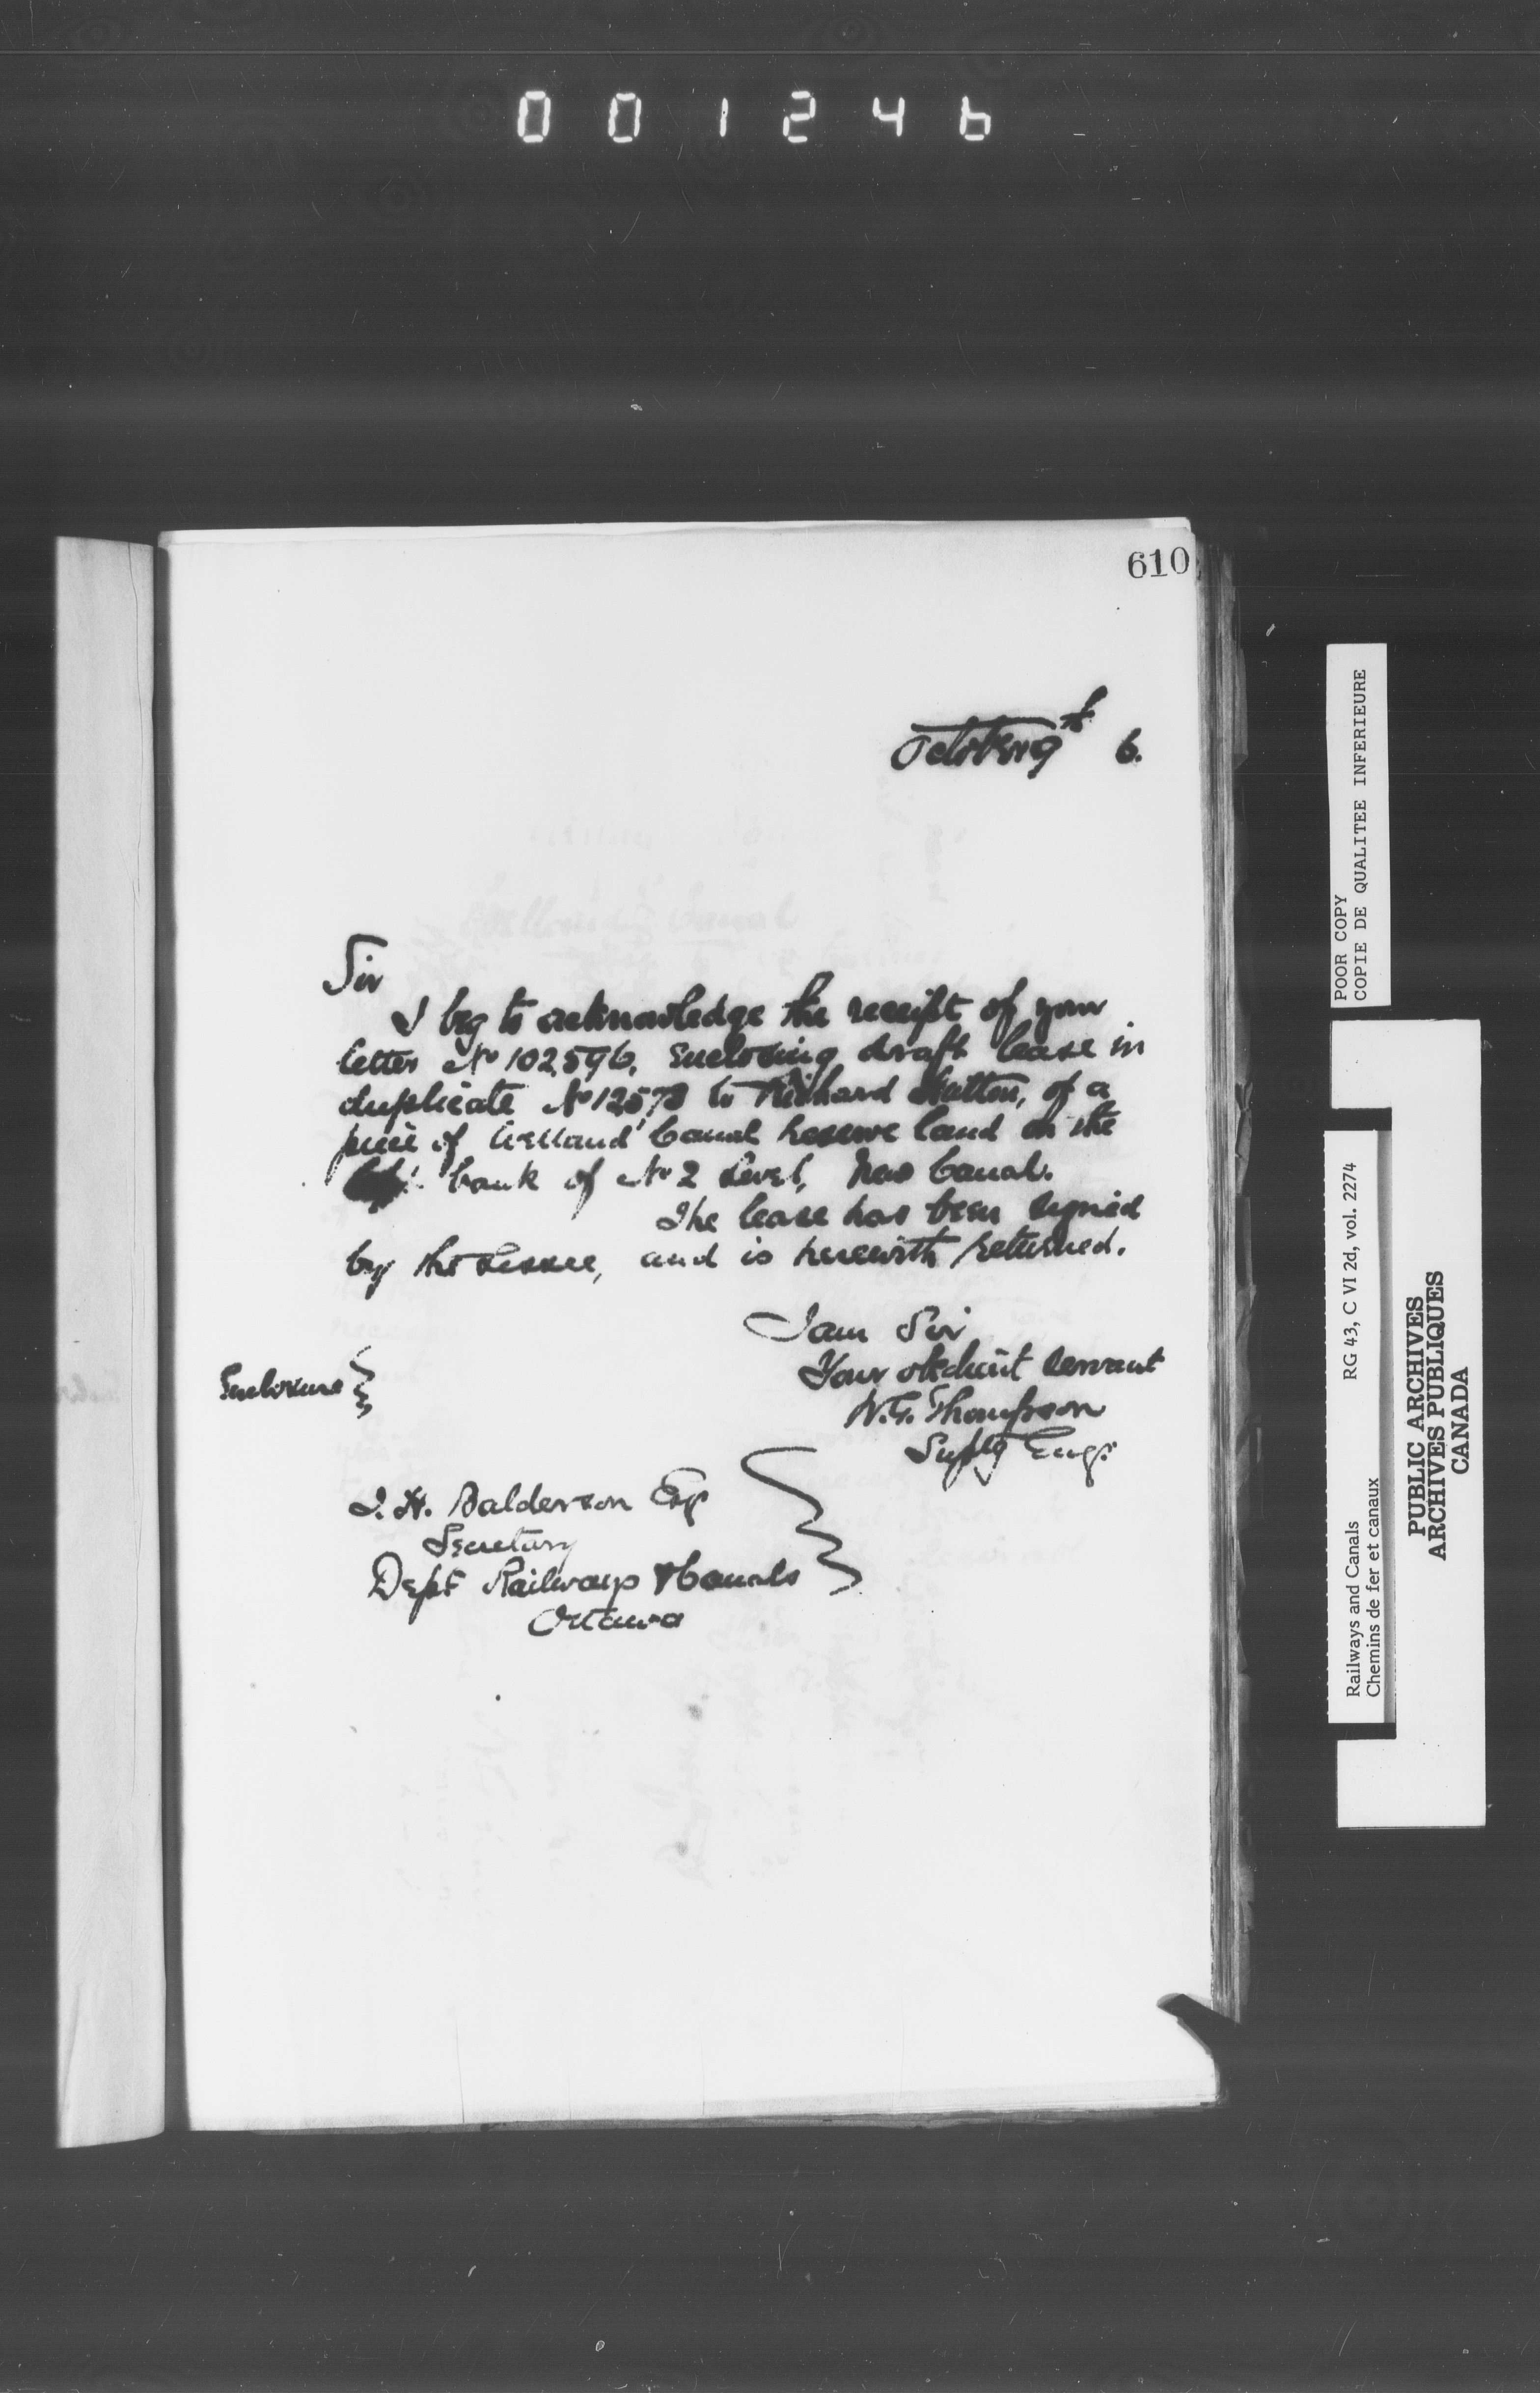 001246
610
October 9th 6.
Sir
I beg to acknowledge the receipt of your
letter No 102,596, enclosing draft lease in
duplicate No 12578 to Richard Hutton, of a
piece of Welland Canal Reserve land on the
bank of No 2 Level, New Canal.
The lease has been signed
by the Lessee, and is herewith returned.
I am Sir
Your obedient servant
W.G. Thompson
Suptg Engr.
Enclosure
L. K. Balderson Esq
Secretary
Dept Railways & Canals
Ottawa
POOR COPY
COPIE DE QUALITEE INFERIEURE
Railways and Canals RG 43, C VI 2d, vol. 2274
Chemins de fer et canaux
PUBLIC ARCHIVES
ARCHIVES PUBLIQUES
CANADA